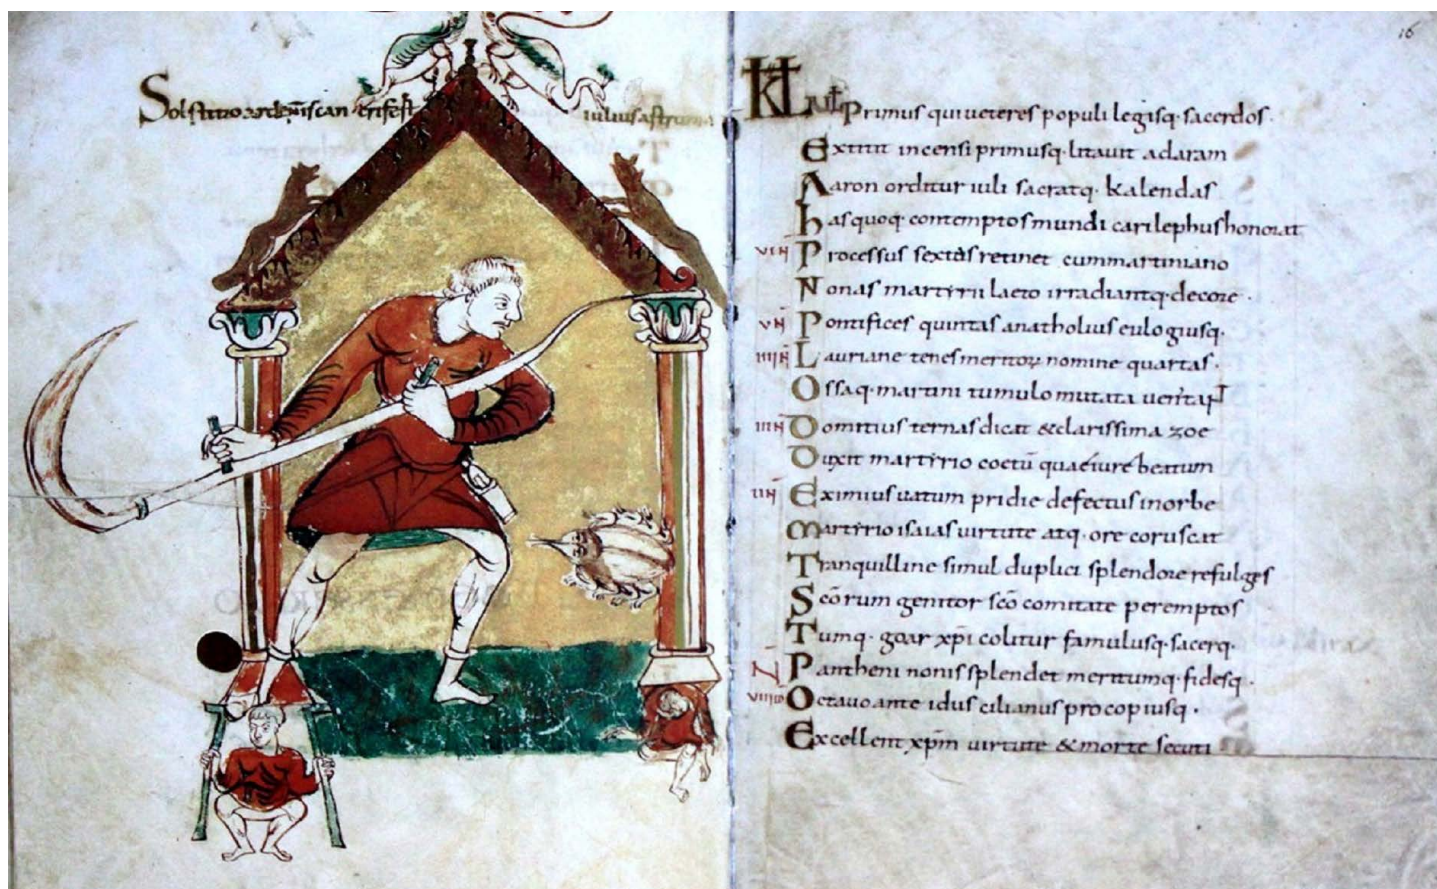 Solstitio ardentis can crifert iuliusastrum
16
KL iul Primus quiueteres populi legisq· sacerdos·
Extitit incensi primusq· litauit adaram
Aaron orditur iuli sacratq· kalendas
hasquoq· contemptosmundi carilephushonorat
VI N Processus sextas retinet cummartiniano
Nonas martirii laeto irradiantq· decore·
V N Pontifices quintas anatholius eulogiusq·
IIII N Lauriane tenesmeritoꝝ nomine quartas·
Ossaq· martini tumulo mutata
III N Domitius ternasdicat &clarissima zoe
Duxit martirio coetū beatum
II N Eximiusuatum pridie defectus inorbe
martirio isaias uirtute atq· ore coruscat
Tranquilline simul duplici splendore refulges
Scōrum genitor scō comitate peremptos
Tumq· goar xp̄i colitur famulusq· sacerq·
N Pantheni nonissplendet meritumq· fidesq·
VIII ID Octauoante idus cilianus procopiusq·
Excellent xp̄m uirtute &morte secuti